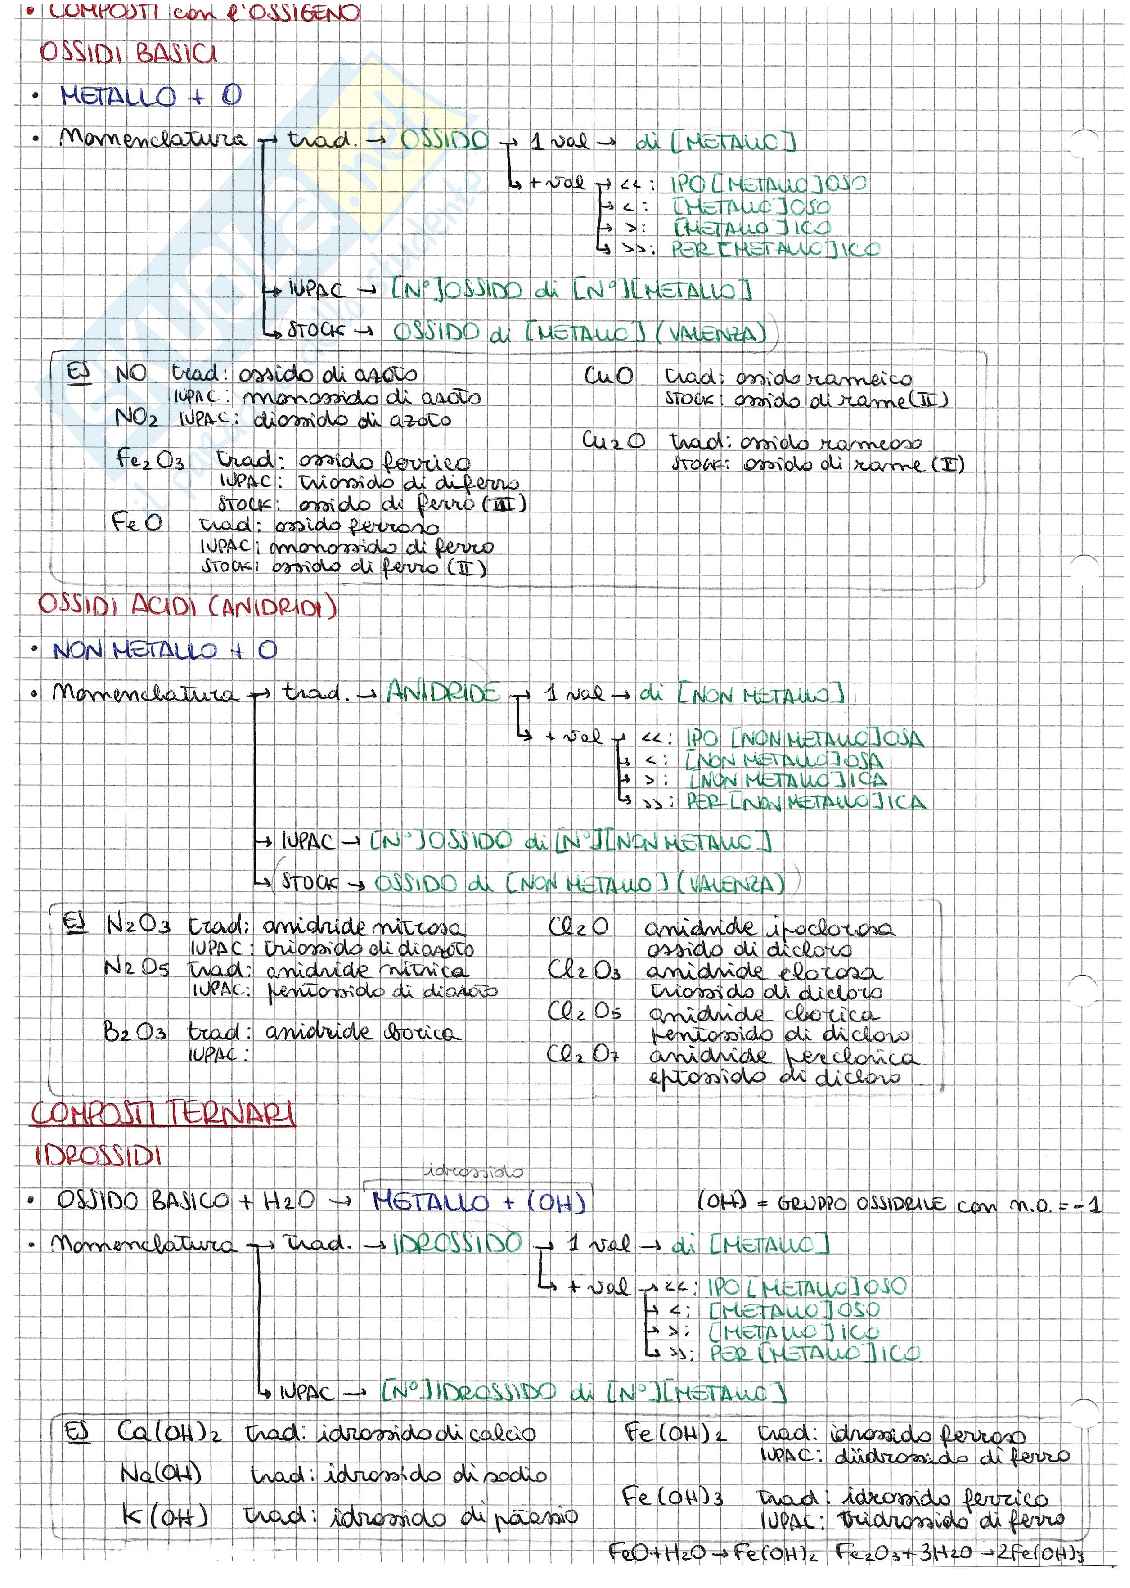 • COMPOSTI con l'OSSIGENO
OSSIDI BASICI
• METALLO + O
• Nomenclatura → trad. → OSSIDO → 1 val → di [METALLO]
→ + val → <<: IPO[METALLO]OSO
→ <: [METALLO]OSO
→ >: [METALLO]ICO
→ >>: PER[METALLO]ICO
→ IUPAC → [N°]OSSIDO di [N°][METALLO]
→ STOCK → OSSIDO di [METALLO] (VALENZA)
ES NO trad: ossido di azoto
IUPAC: monossido di azoto
NO2 IUPAC: diossido di azoto
Fe2O3 trad: ossido ferrico
IUPAC: triossido di diferro
STOCK: ossido di ferro (III)
FeO trad: ossido ferroso
IUPAC: monossido di ferro
STOCK: ossido di ferro (II)
CuO trad: ossido rameico
STOCK: ossido di rame (II)
Cu2O trad: ossido rameoso
STOCK: ossido di rame (I)
OSSIDI ACIDI (ANIDRIDI)
• NON METALLO + O
• Nomenclatura → trad. → ANIDRIDE → 1 val → di [NON METALLO]
→ + val → <<: IPO [NON METALLO]OSA
→ <: [NON METALLO]OSA
→ >: [NON METALLO]ICA
→ >>: PER[NON METALLO]ICA
→ IUPAC → [N°]OSSIDO di [N°][NON METALLO]
→ (STOCK → OSSIDO di [NON METALLO] (VALENZA))
ES N2O3 trad: anidride nitrosa
IUPAC: triossido di diazoto
N2O5 trad: anidride nitrica
IUPAC: pentossido di diazoto
B2O3 trad: anidride borica
IUPAC:
Cl2O anidride ipoclorosa
ossido di dicloro
Cl2O3 anidride clorosa
triossido di dicloro
Cl2O5 anidride clorica
pentossido di dicloro
Cl2O7 anidride perclorica
eptossido di dicloro
COMPOSTI TERNARI
IDROSSIDI
idrossido
• OSSIDO BASICO + H2O → METALLO + (OH) (OH) = GRUPPO OSSIDRILE con n.o. = -1
• Nomenclatura → trad. → IDROSSIDO → 1 val → di [METALLO]
→ + val → <<: IPO[METALLO]OSO
→ <: [METALLO]OSO
→ >: [METALLO]ICO
→ >>: PER[METALLO]ICO
→ IUPAC → [N°]IDROSSIDO di [N°][METALLO]
ES Ca(OH)2 trad: idrossido di calcio
Na(OH) trad: idrossido di sodio
K(OH) trad: idrossido di potassio
Fe(OH)2 trad: idrossido ferroso
IUPAC: diidrossido di ferro
Fe(OH)3 trad: idrossido ferrico
IUPAC: triidrossido di ferro
FeO+H2O→Fe(OH)2 Fe2O3+3H2O→2Fe(OH)3